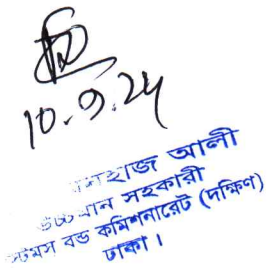 10.9.24
আলী
উচ্চমান সহকারী
কাস্টমস বন্ড কমিশনারেট (দক্ষিণ)
ঢাকা।